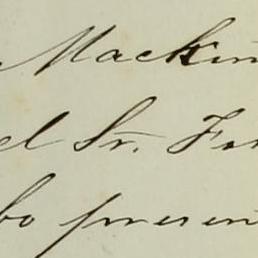 Mackin
el Sr. Fo
bo presen